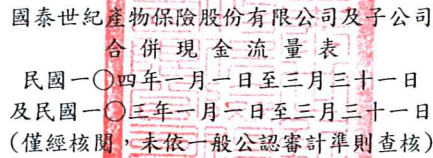 國泰世紀產物保險股份有限公司及子公司
合併現金流量表
民國一〇四年一月一日至三月三十一日
及民國一〇三年一月一日至三月三十一日
(僅經核閱，未依一般公認審計準則查核)